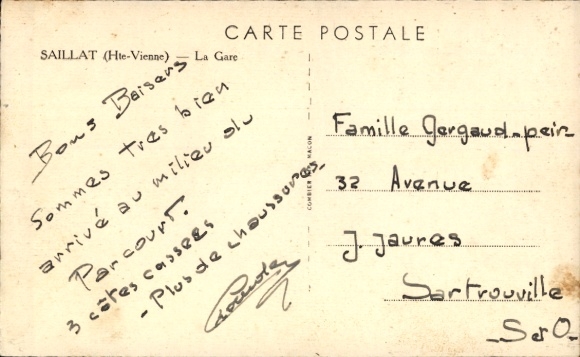 CARTE POSTALE
SAILLAT (Hte-Vienne) — La Gare
Bons Baisers
Sommes très bien
arrivé au milieu du
Parcourt.
3 côtes cassées
- Plus de chaussures
COMBIER MACON
Famille Gergaud-pein
32 Avenue
J. Jaures
Sartrouville
- S et O -